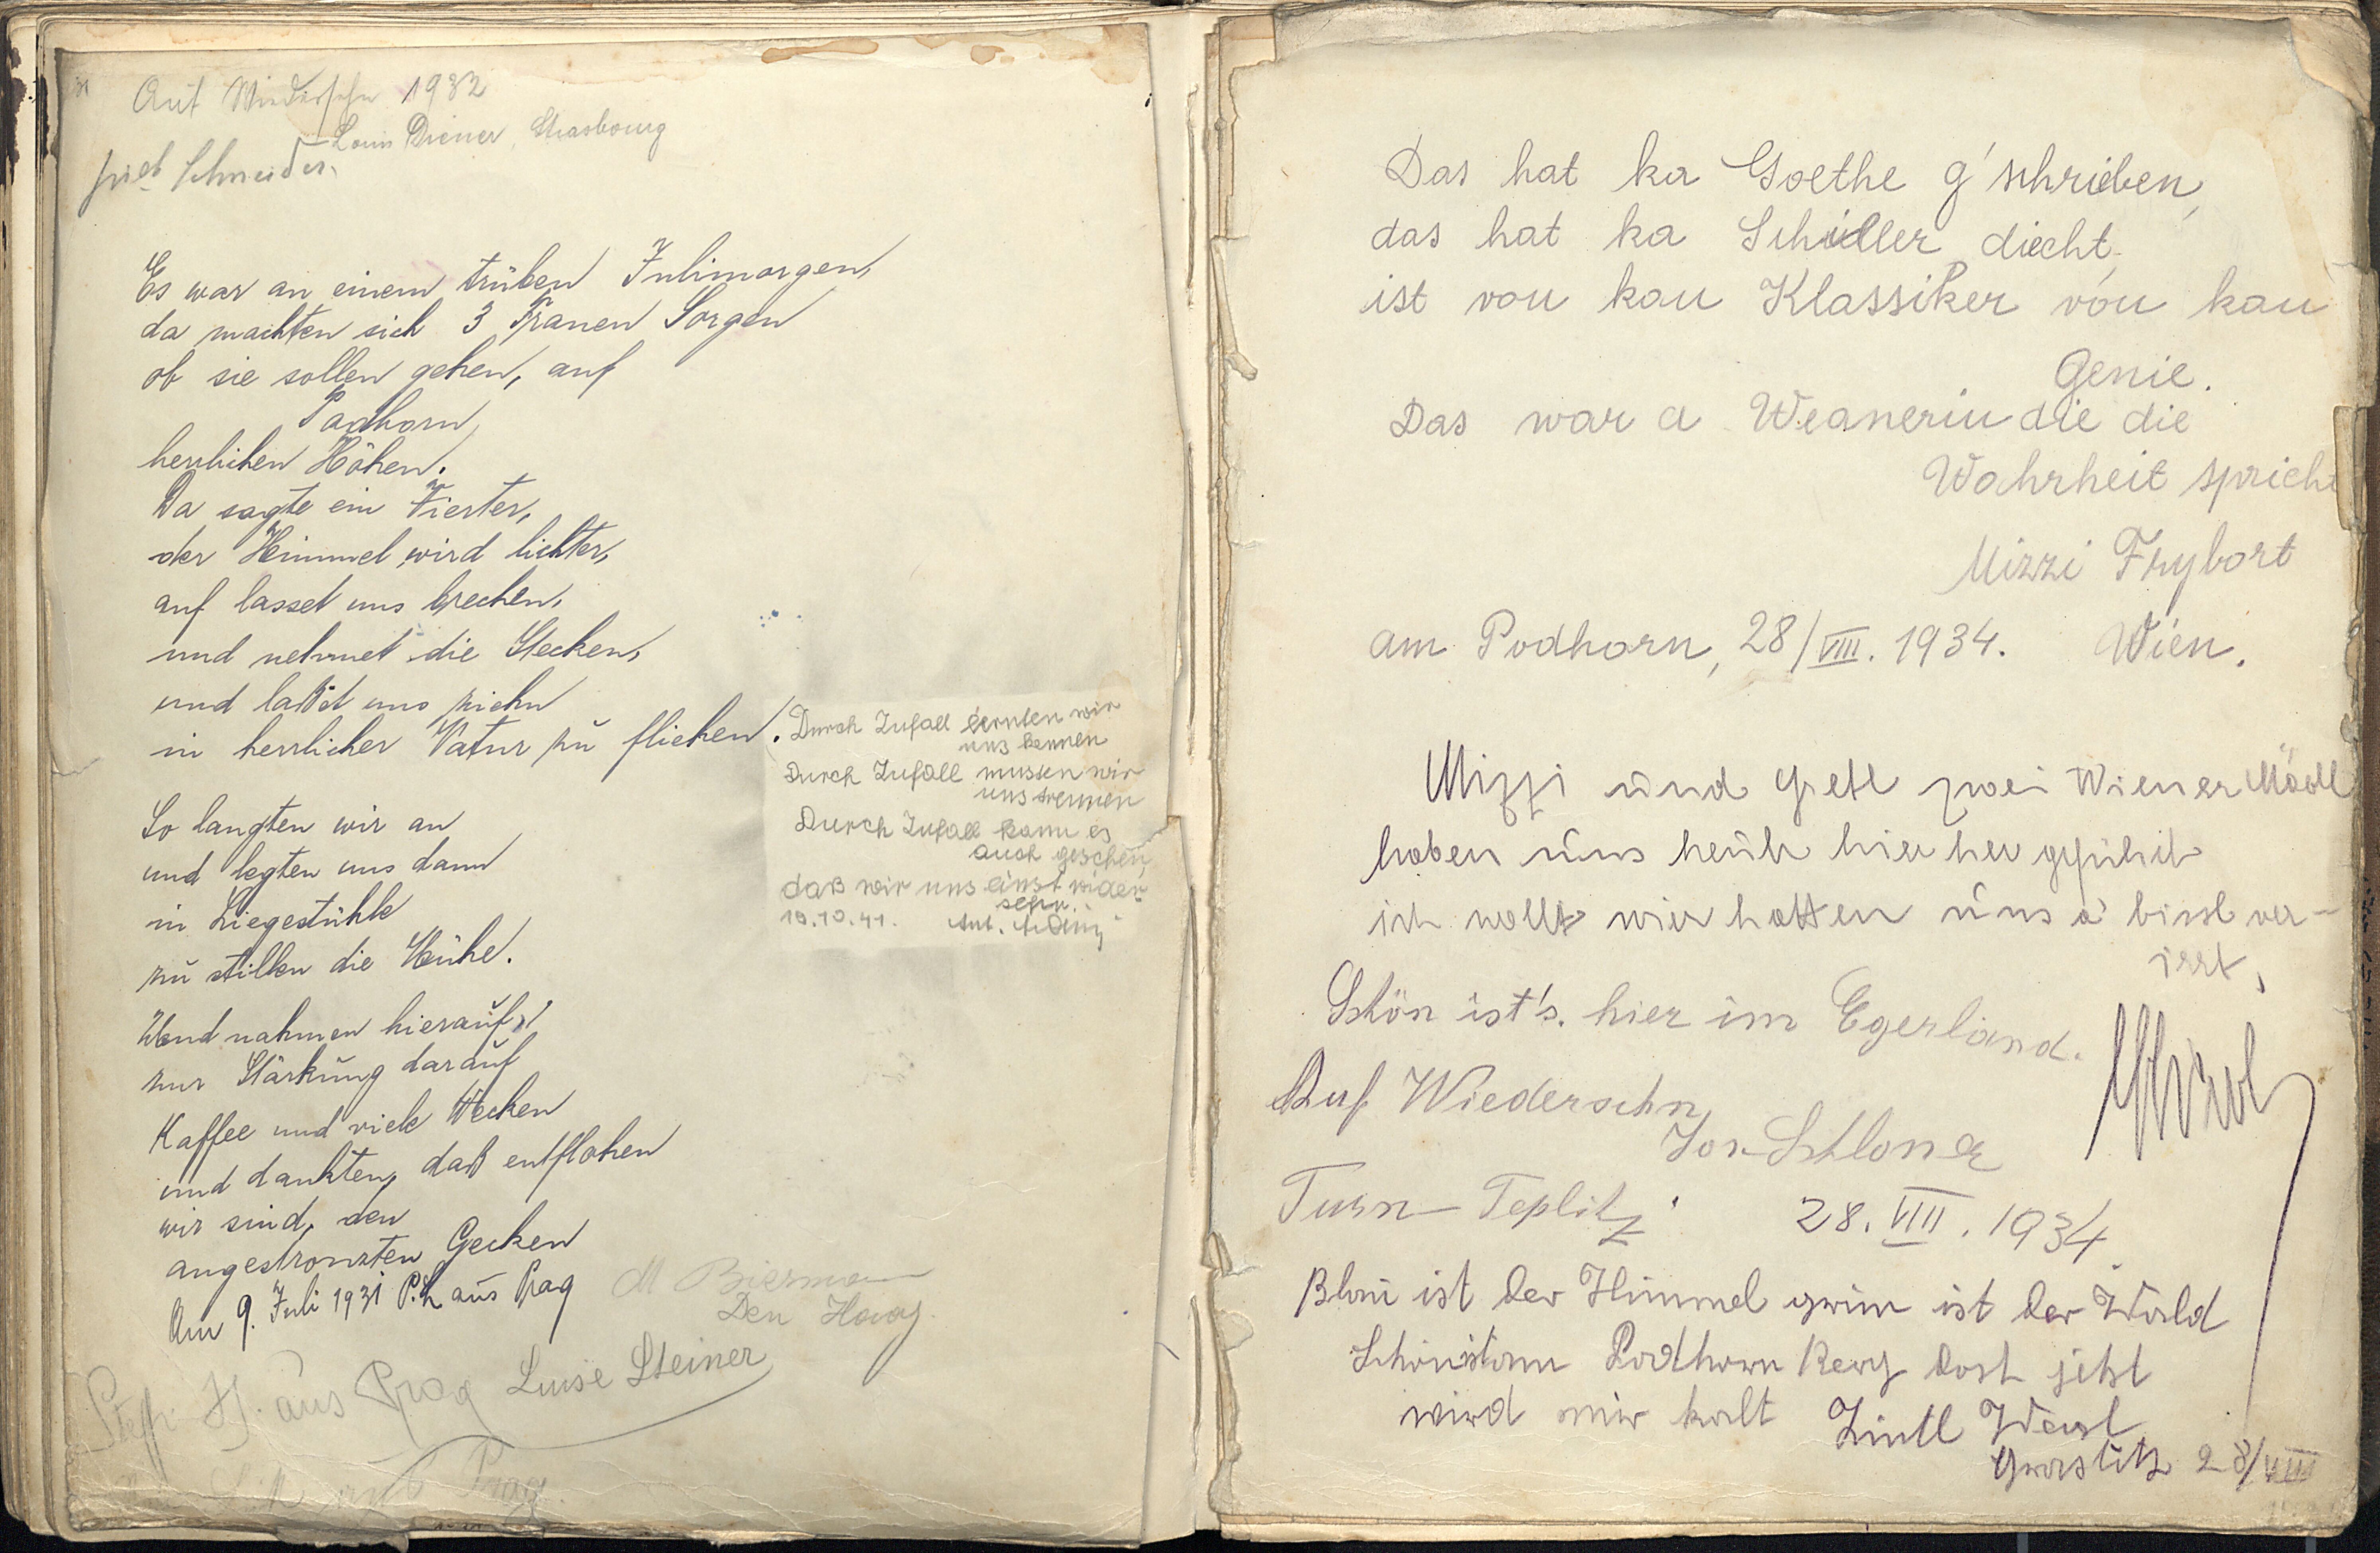 Auf Wiedersehn 1932
Louis Diener, Strasbourg
Schneider.
Es war an einem trüben Julimorgen,
da machten sich 3 Franen Sorgen
ob sie sollen gehen, auf
Podhorn
herrlichen Höhen.
Da sagte ein Vierter,
der Himmel wird lichter,
auf lasset uns brechen,
und nehmet die Stecken,
und laßt uns ziehn
in herrlicher Natur zu fliehen.
So langten wir an
und legten uns dann
in Liegestühle
zu stillen die Mühe.
Und nahmen hierauf,
zur Stärkung darauf
Kaffee und viele Wecken
und dankten, daß entflohen
wir sind, den
angestronzten Gecken
Am 9. Juli 1931 P.L. aus Prag
M Bierman
Den Haag.
Steff. H. aus Prag Luise Steiner
Prag.
Durch Zufall lernten wir
uns kennen
Durch Zufall mussen wir
uns trennen
Durch Zufall kann es
auch geschen,
daß wir uns einst wider-
sehn.
19.10.41. Ant.
Das hat ka Goethe g'schrieben,
das hat ka Schiller diecht,
ist von kan Klassiker von kan
Genie.
Das war a Weanerin die die
Wahrheit spricht
Mizzi Frybort
am Podhorn, 28/VIII. 1934. Wien.
Mizzi und Gretl zwei Wiener Mädl
haben uns heute hier her geführt
ich wollt wir hatten uns a bissl ver-
irrt,
Schön ist's. hier im Egerland.
Auf Wiedersehn,
Jos. Schloner
Turn-Teplitz. 28. VIII. 1934
Blau ist der Himmel grün ist der Wald
Schön ist am Podhorn Berg doch jetzt
wird mir kalt Zintl Wenzl
Graslitz 28/VIII